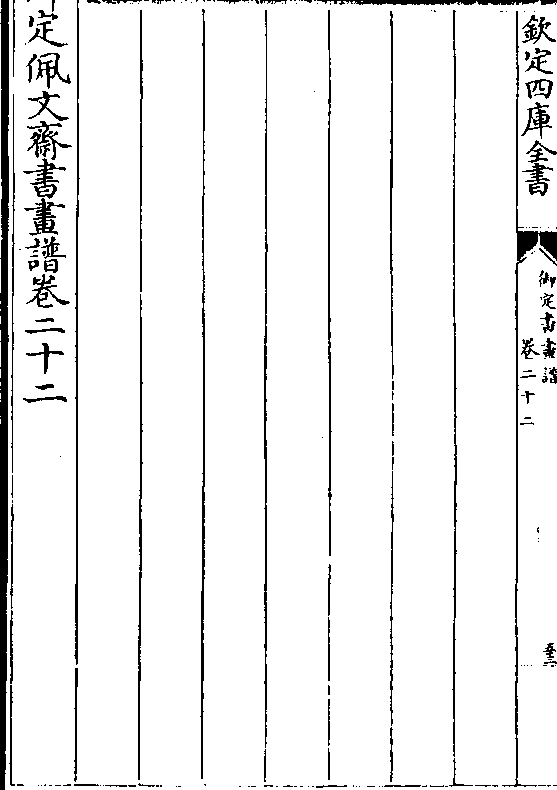 欽定四庫全書
御定書畫譜
卷二十二
定佩文齋書畫譜卷二十二